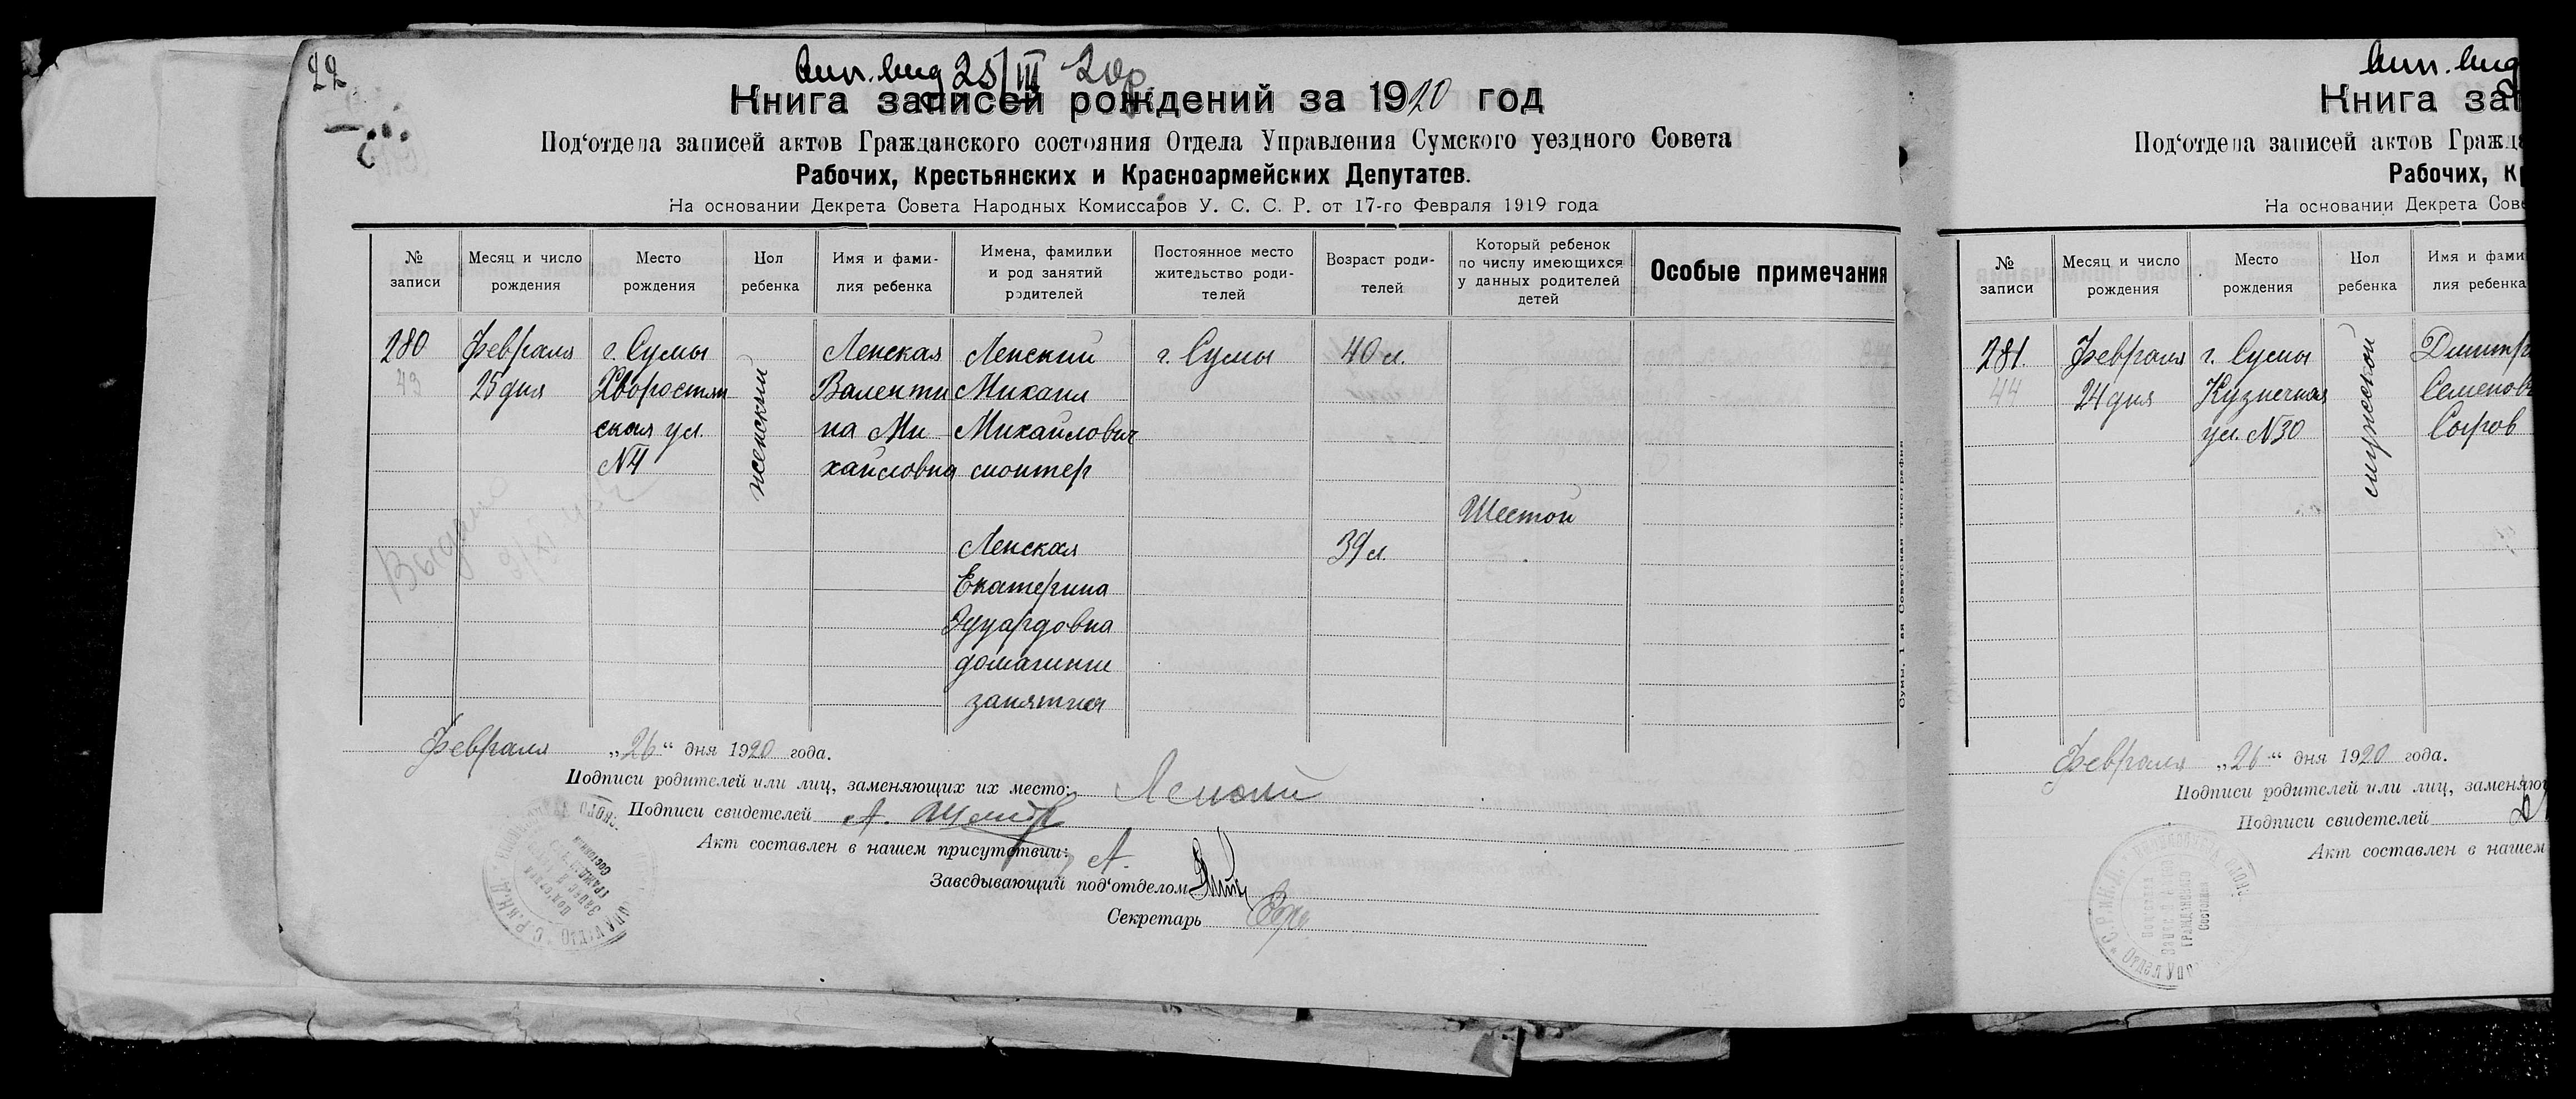 22
25/III 20г.
Книга записей рождений за 1920 год
Под'отдела записей актов Гражданского состояния Отдела Управления Сумского уездного Совета
Рабочих, Крестьянских и Красноармейских Депутатов.
На основании Декрета Совета Народных Комиссаров У. С. С. Р. от 17-го Февраля 1919 года
№ записи
Месяц и число рождения
Место рождения
Пол ребенка
Имя и фамилия ребенка
Имена, фамилии и род занятий родителей
Постоянное место жительство родителей
Возраст родителей
Который ребенок по числу имеющихся у данных родителей детей
Особые примечания
280
43
Февраля
25 дня
г. Сумы
Хворостян
ская ул.
N4
женский
Ленская
Валенти
на Ми
хайловна
Ленский
Михаил
Михайлович
монтер
г. Сумы
40 л.
Шестой
Ленская
Екатерина
Эдуардовна
домашние
занятия
39 л.
Выдано
Февраля „26“ дня 1920 года.
Подписи родителей или лиц, заменяющих их место: Ленский
Подписи свидетелей А.
Акт составлен в нашем присутствии:
Заведывающий под'отделом
Секретарь
Сумы, 1-ая Советская типография
Книга зап
Под'отдела записей актов Гражда
Рабочих, Кр
На основании Декрета Сове
№ записи
Месяц и число рождения
Место рождения
Пол ребенка
Имя и фами
лия ребенка
281.
44
Февраля
24 дня
г. Сумы
Кузнечная
ул. N30
мужской
Димитр
Семенов
Сыров
Февраля „26“ дня 1920 года.
Подписи родителей или лиц, заменяющ
Подписи свидетелей
Акт составлен в нашем
С.Р.И.К.Д.
Отдел Упр
Под'отдел
Записей актов
Гражданского
Состояния